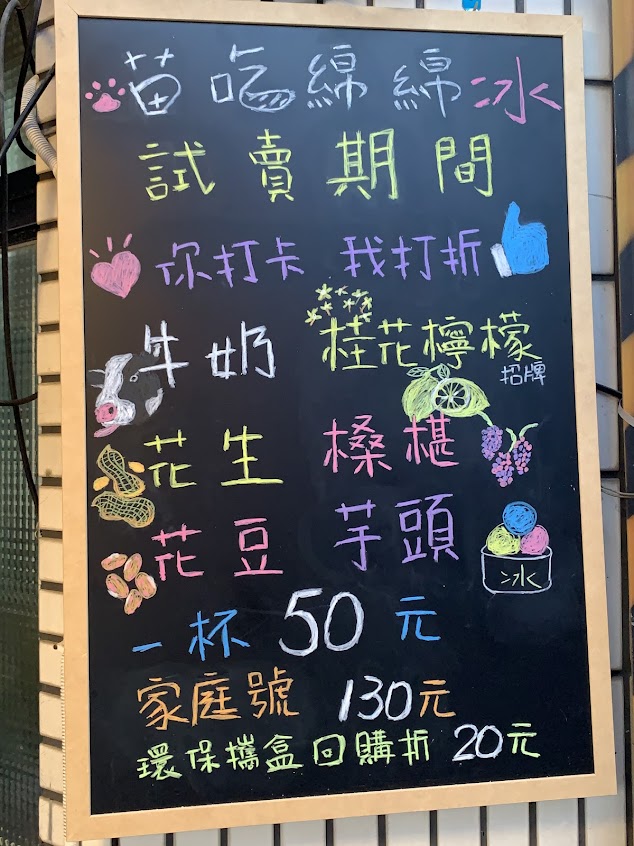 苗吃綿綿冰
試賣期間
你打卡 我打折
牛奶 桂花檸檬
招牌
花生 桑椹
花豆 芋頭
冰
一杯 50元
家庭號 130元
環保攜盒回購折 20元